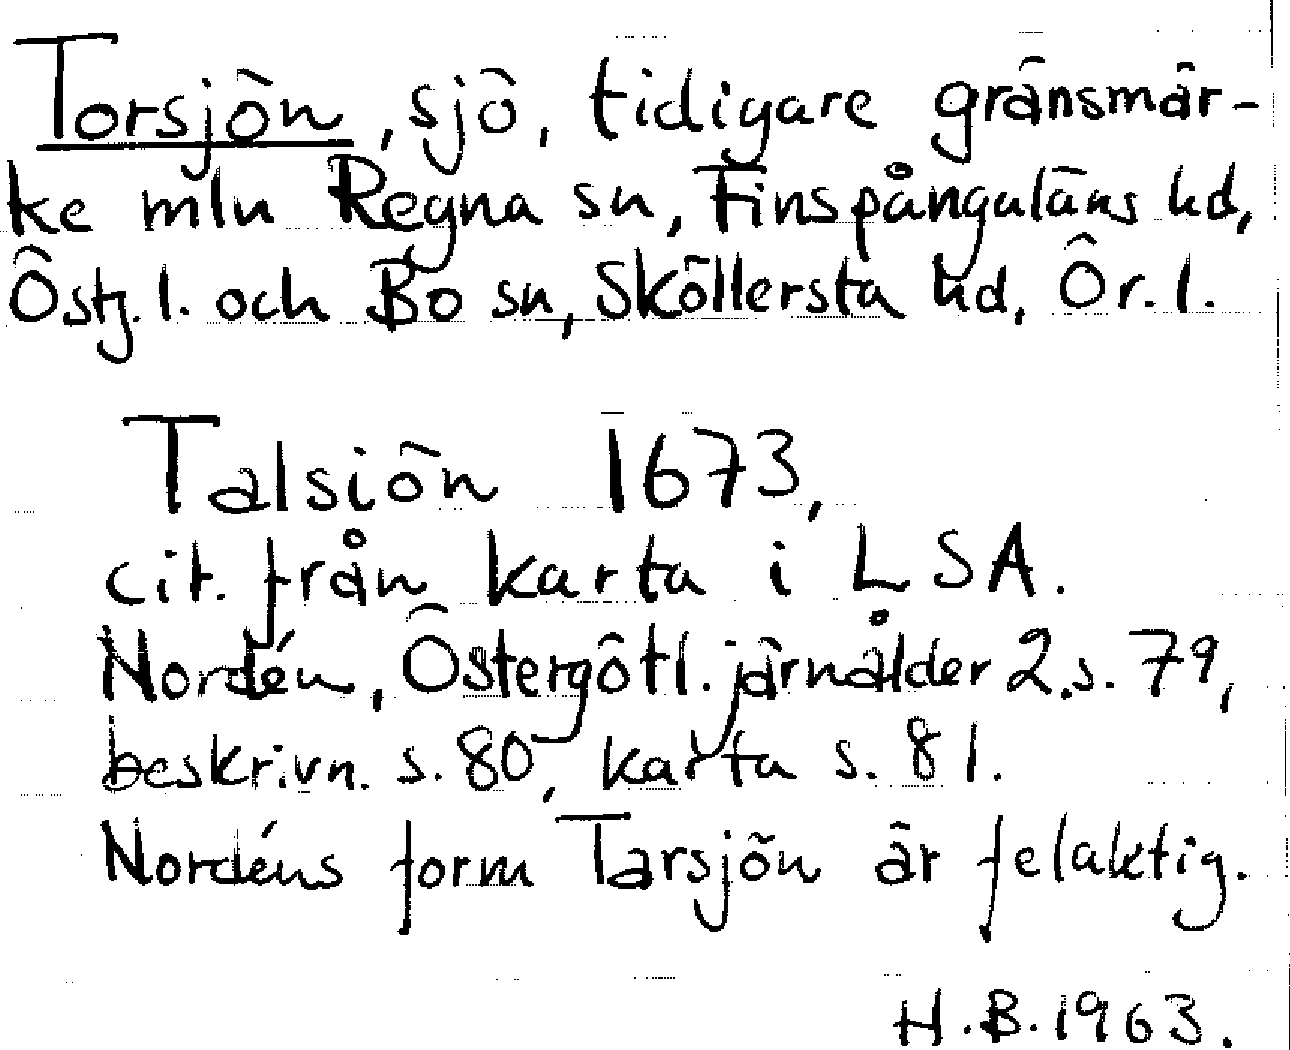 Torsjön, sjö, tidigare gränsmär-
ke mln Regna sn, Finspångaläns hd,
Östg. l. och Bo sn, Sköllersta hd, Ör. l.
Talsiön 1673,
cit. från karta i LSA.
Nordén, Östergötl. järnålder 2. s. 79,
beskrivn. s. 80, karta s. 81.
Nordéns form Tarsjön är felaktig.
H.B. 1963.